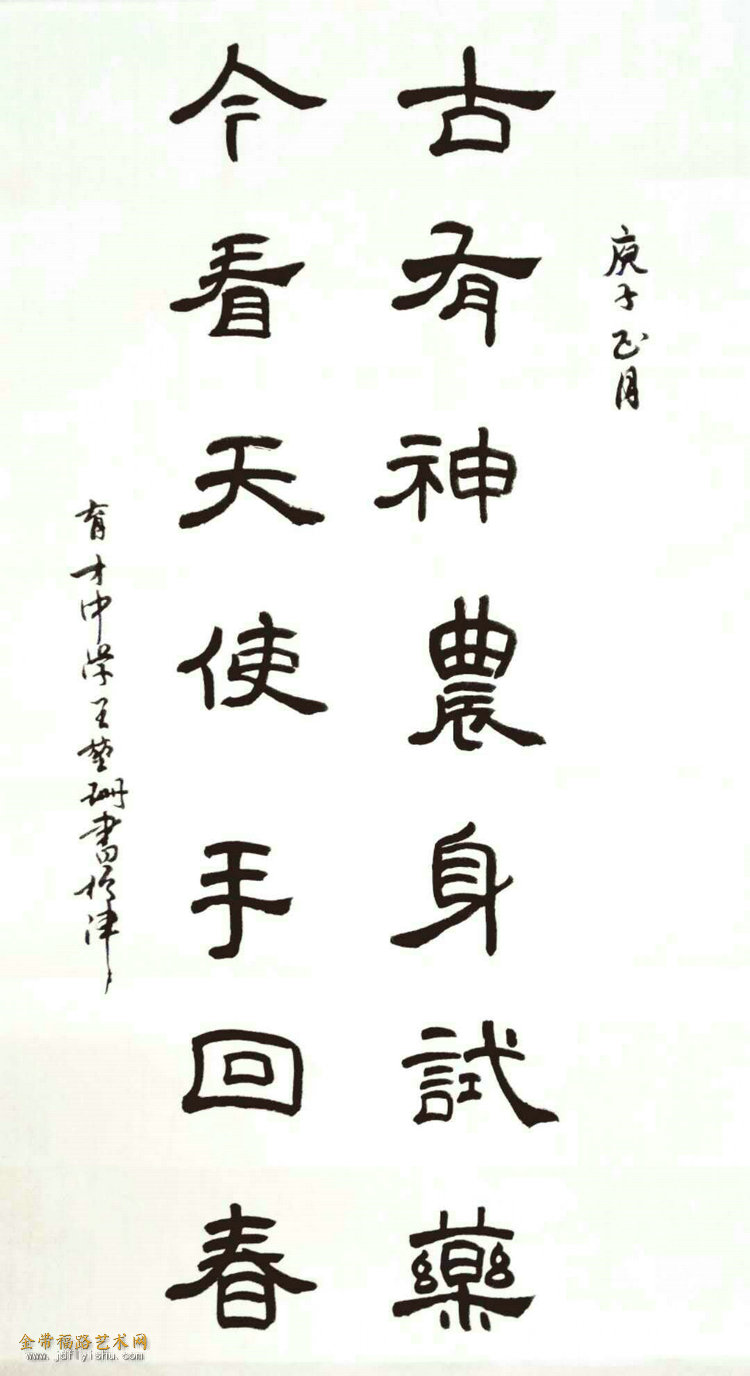 庚子正月
古有神農身試藥
今看天使手回春
育才中学王艺珊書於津
金带福路艺术网
www.jdflyishu.com